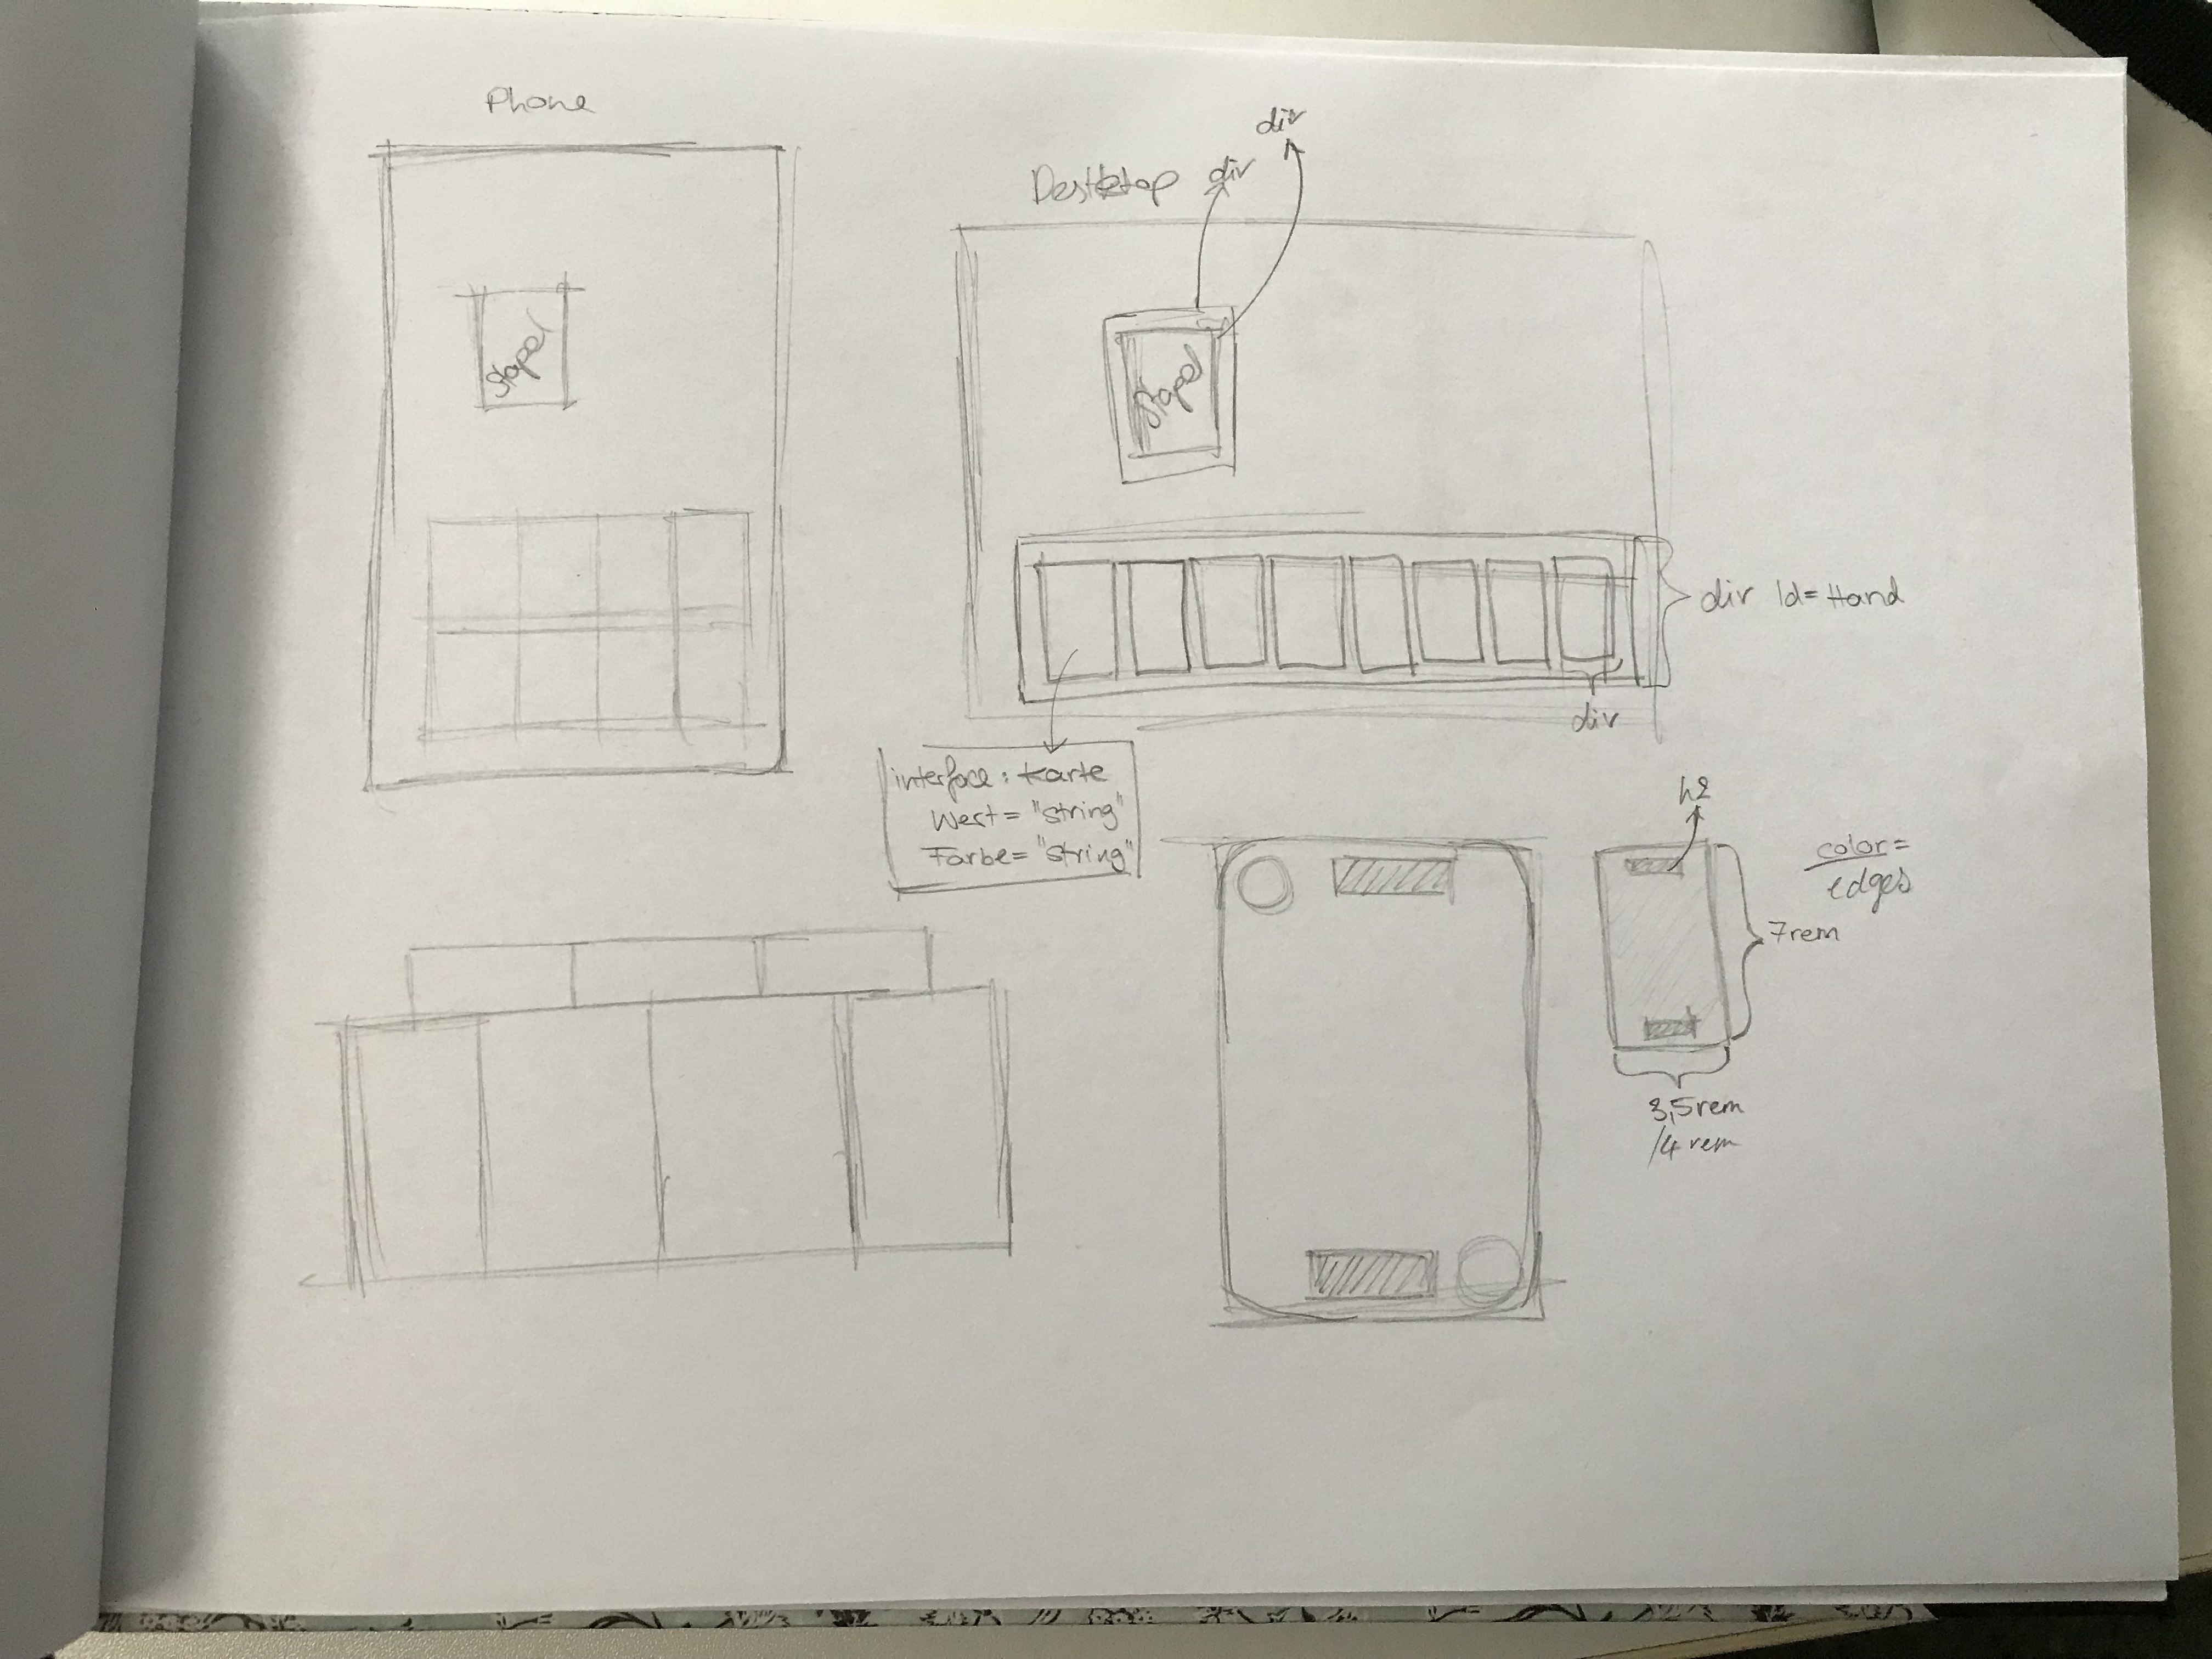 Phone
Stapel
div
Desktop div
Stapel
div Id= Hand
div
interface: Karte
Wert= "string"
Farbe= "string"
h2
color=
edges
7rem
3,5rem
/4 rem